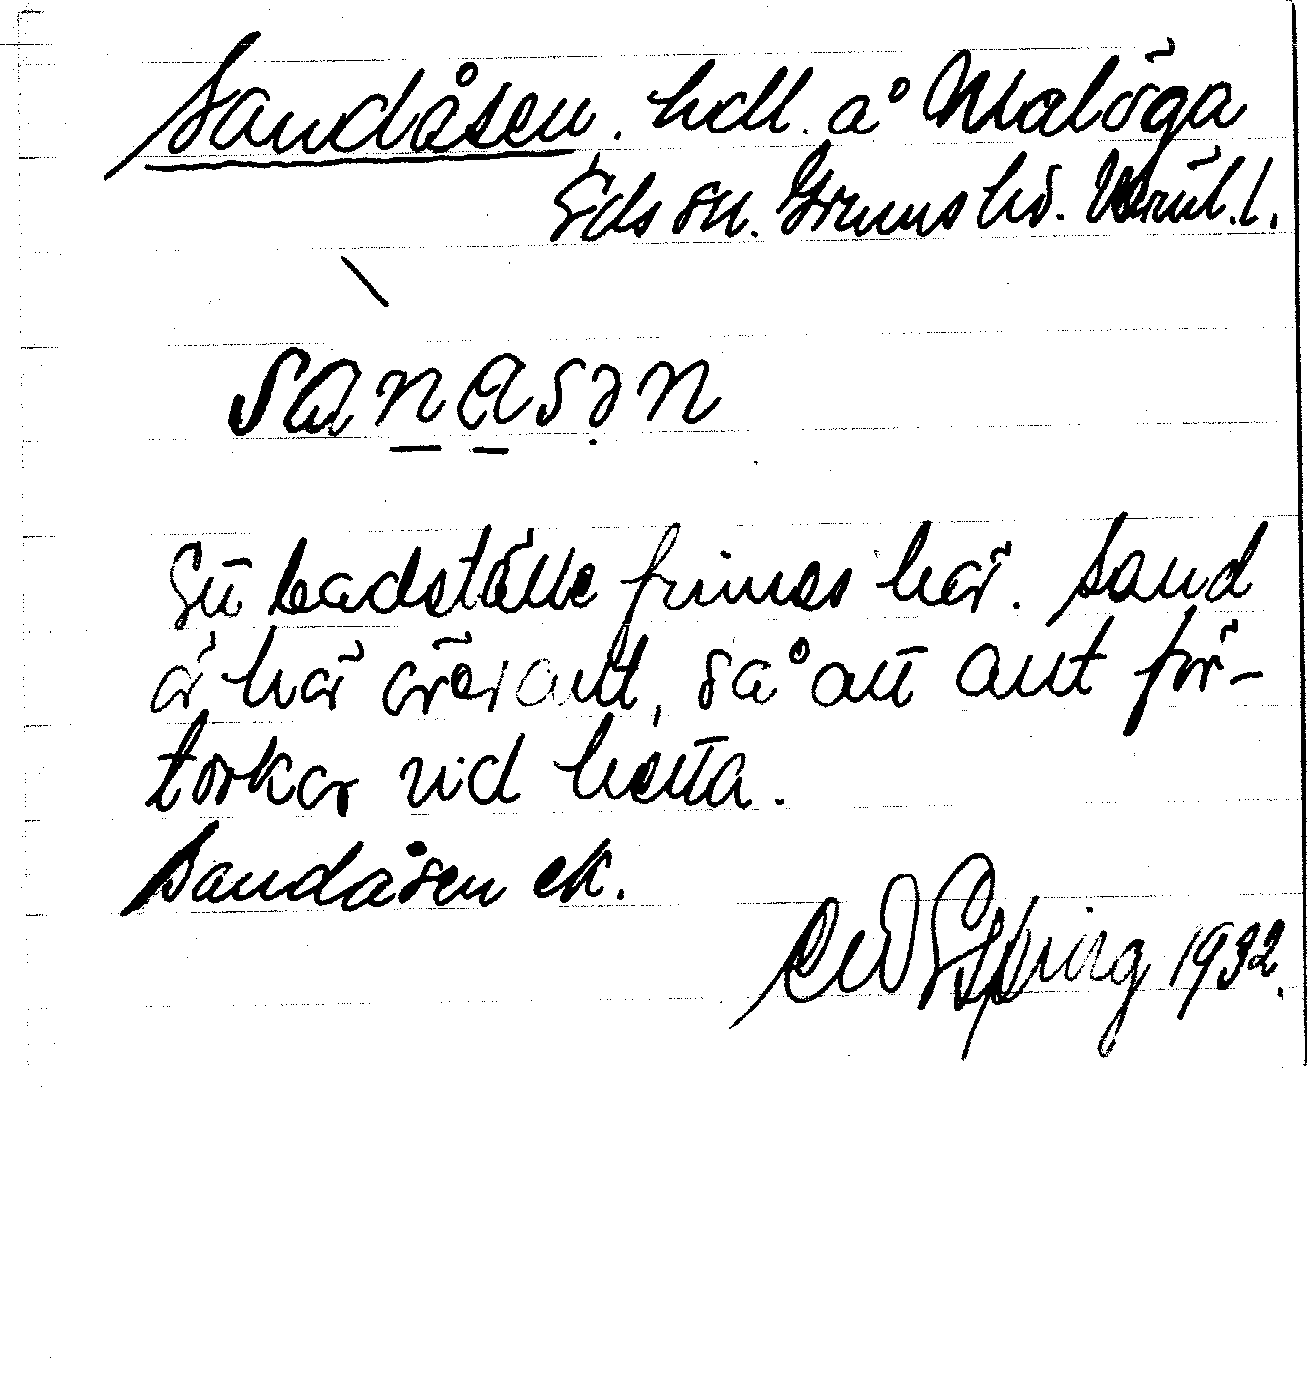 Sandåsen. hdl. å Malöga
Eds sn. Grums hd. Värml. l.
sanasən
Ett badställe finnes här. Sand
är här överallt, så att allt för-
torkar vid hetta.
Sandåsen ek.
1932.